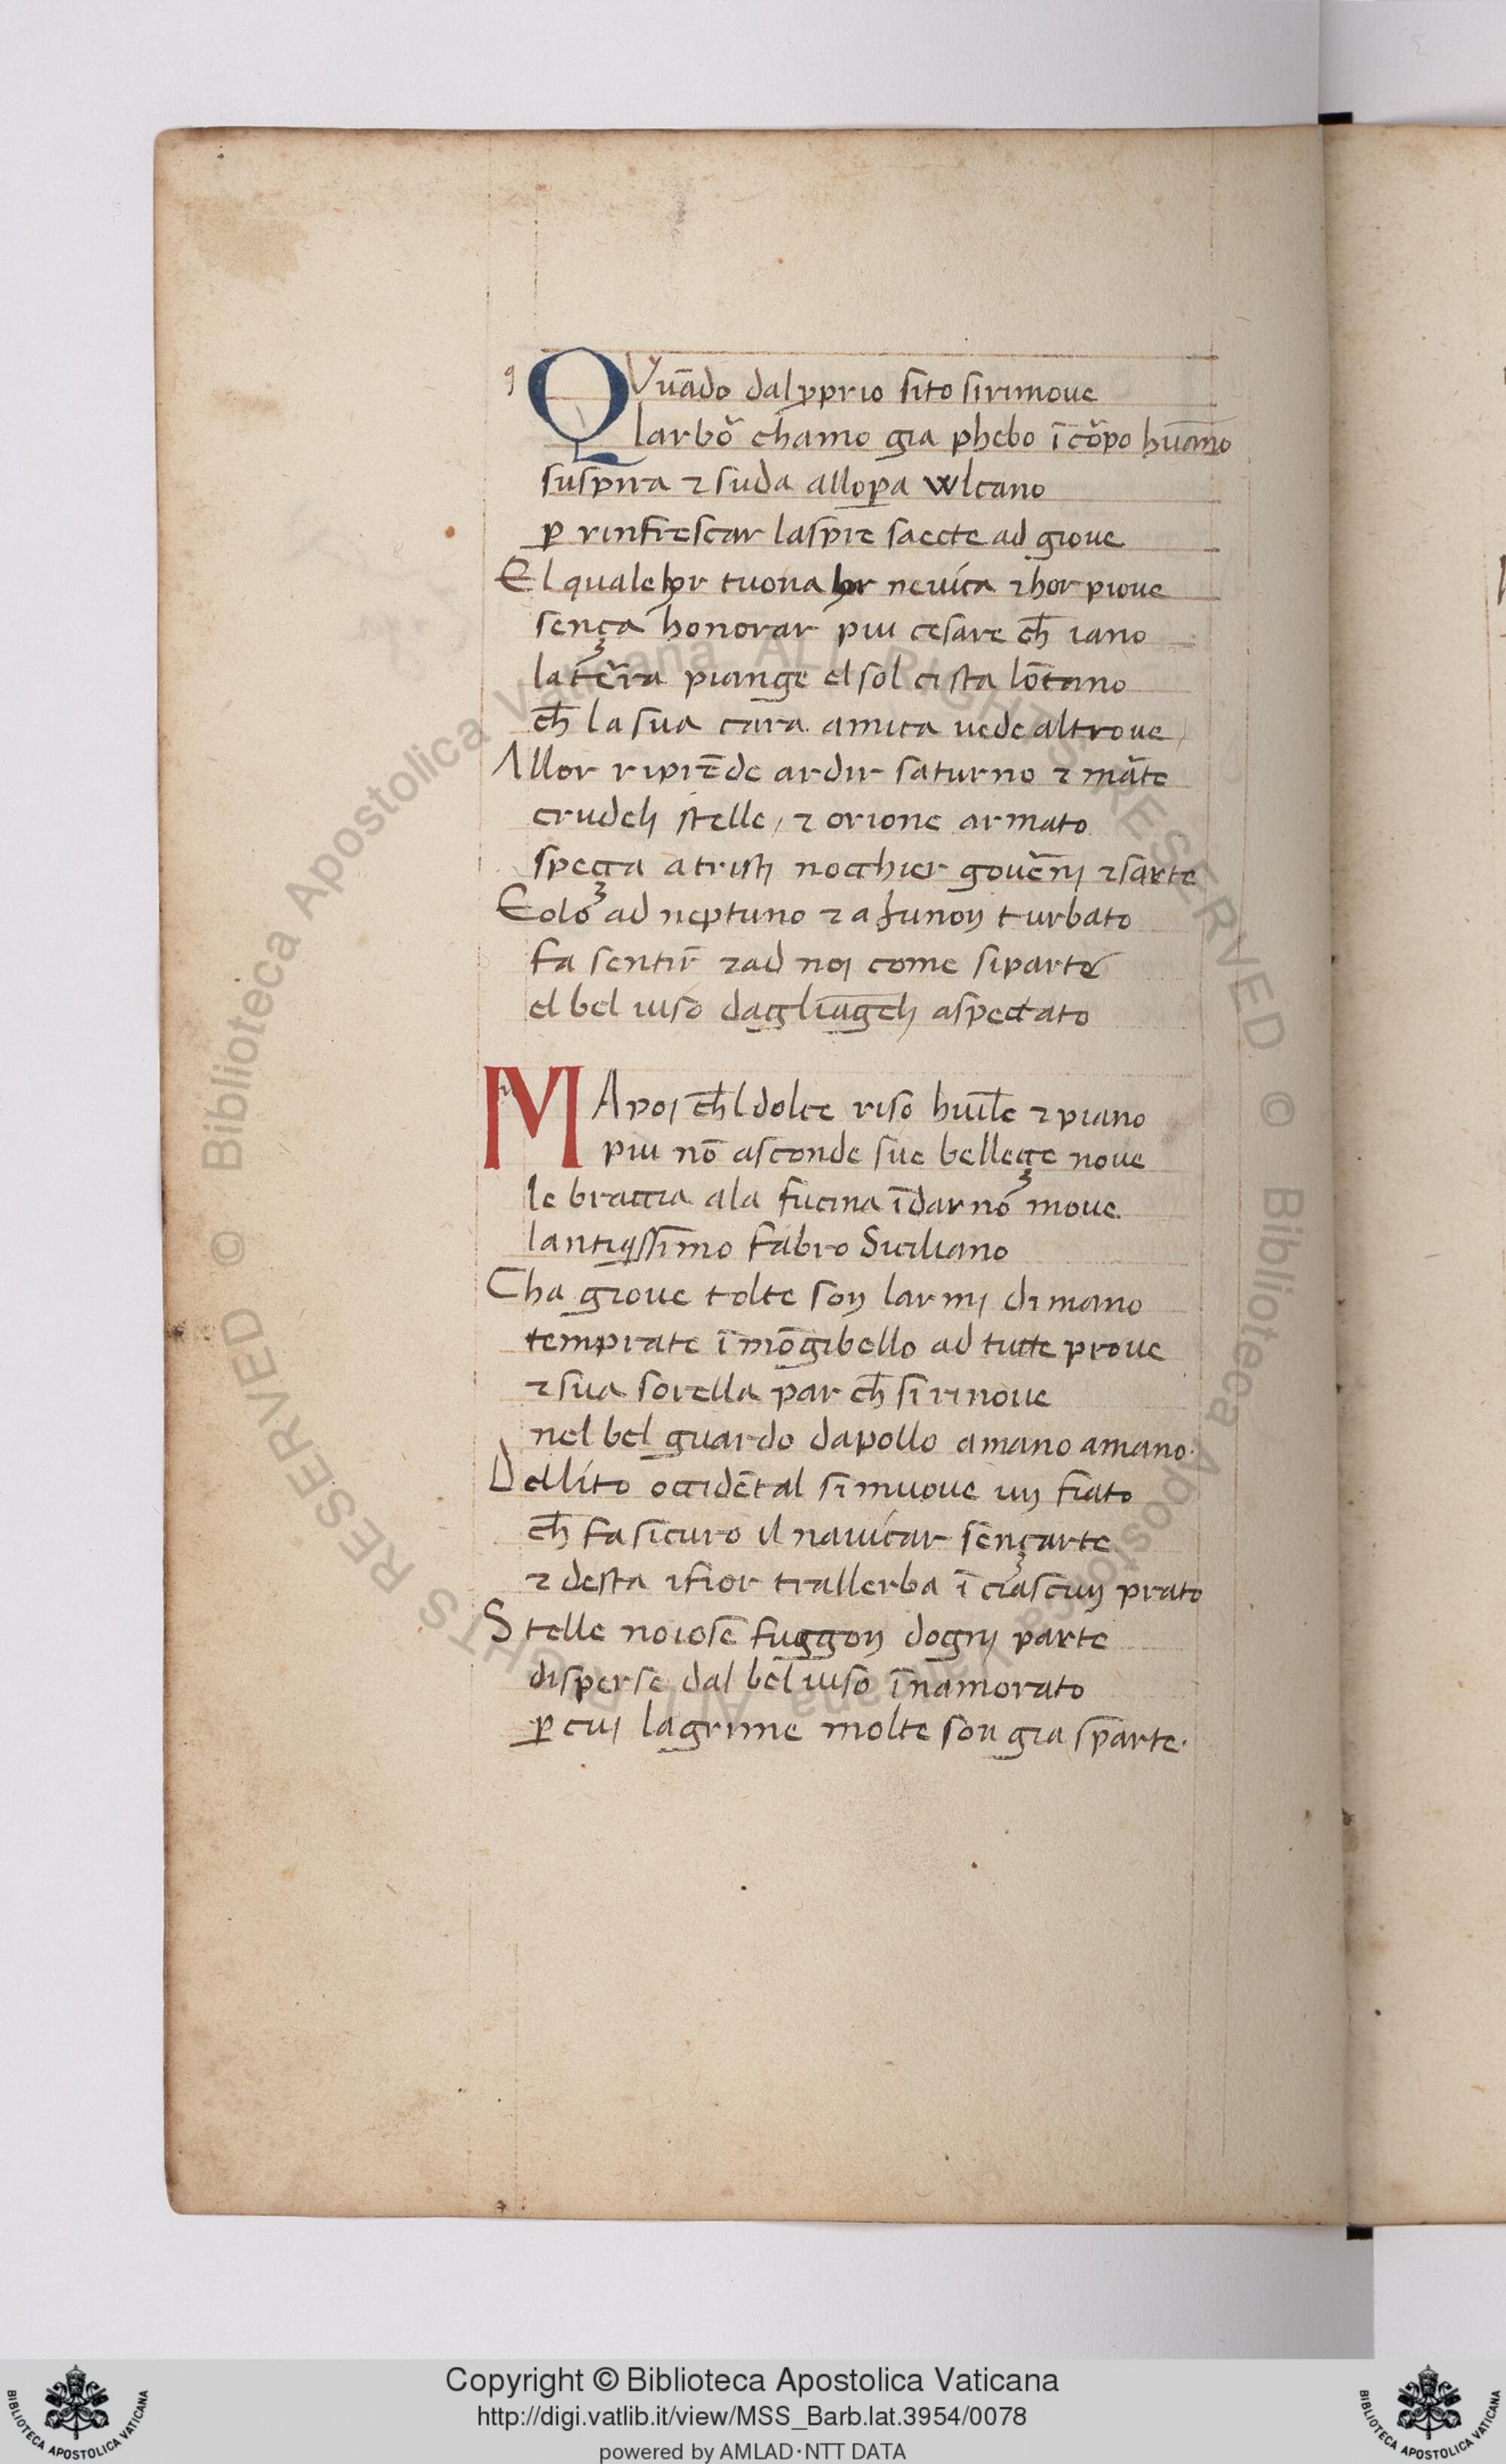 q QVuādo dal ꝓprio sito si rimoue
larbō chamo gia phebo ī cōpo hūano
suspira ⁊ suda allopa wlcano
ꝑ rinfrescar laspre saecte ad gioue
El quale hor tuona hor neuica ⁊ hor pioue
sença honorar piu cesare ch̄ iano
la tēra piange el sol ci sta lōtano
ch̄ la sua cara amica uede altroue
Allor riprēde ardir saturno ⁊ māte
crudelj stelle, ⁊ orione armato
speçça a tristj nocchier gouēnj ⁊ sarte
Eolo ad neptuno ⁊ a Junon turbato
fa sentir̄ ⁊ ad noj come si parte
el bel uiso dagliāgelj aspectato
MA poj ch̄l dolce riso hūile ⁊ piano
piu nō asconde sue belleççe noue
le braccia a la fucina īdarno moue
lantiqssimo fabro Siciliano
Cha gioue tolte son larmj di mano
temprate ī mōgibello ad tutte proue
⁊ sua sorella par ch̄ si rinoue
nel bel guardo dapollo amano amano.
Del lito occidētal si muoue un fiato
ch̄ fa sicuro il nauicar sençarte
⁊ desta i fior tra llerba ī ciascun prato
Stelle noiose fuggon dognj parte
disperse dal bel uiso īnamorato
ꝑ cuj lagrime molte son gia sparte.
Copyright © Biblioteca Apostolica Vaticana
http://digi.vatlib.it/view/MSS_Barb.lat.3954/0078
powered by AMLAD·NTT DATA